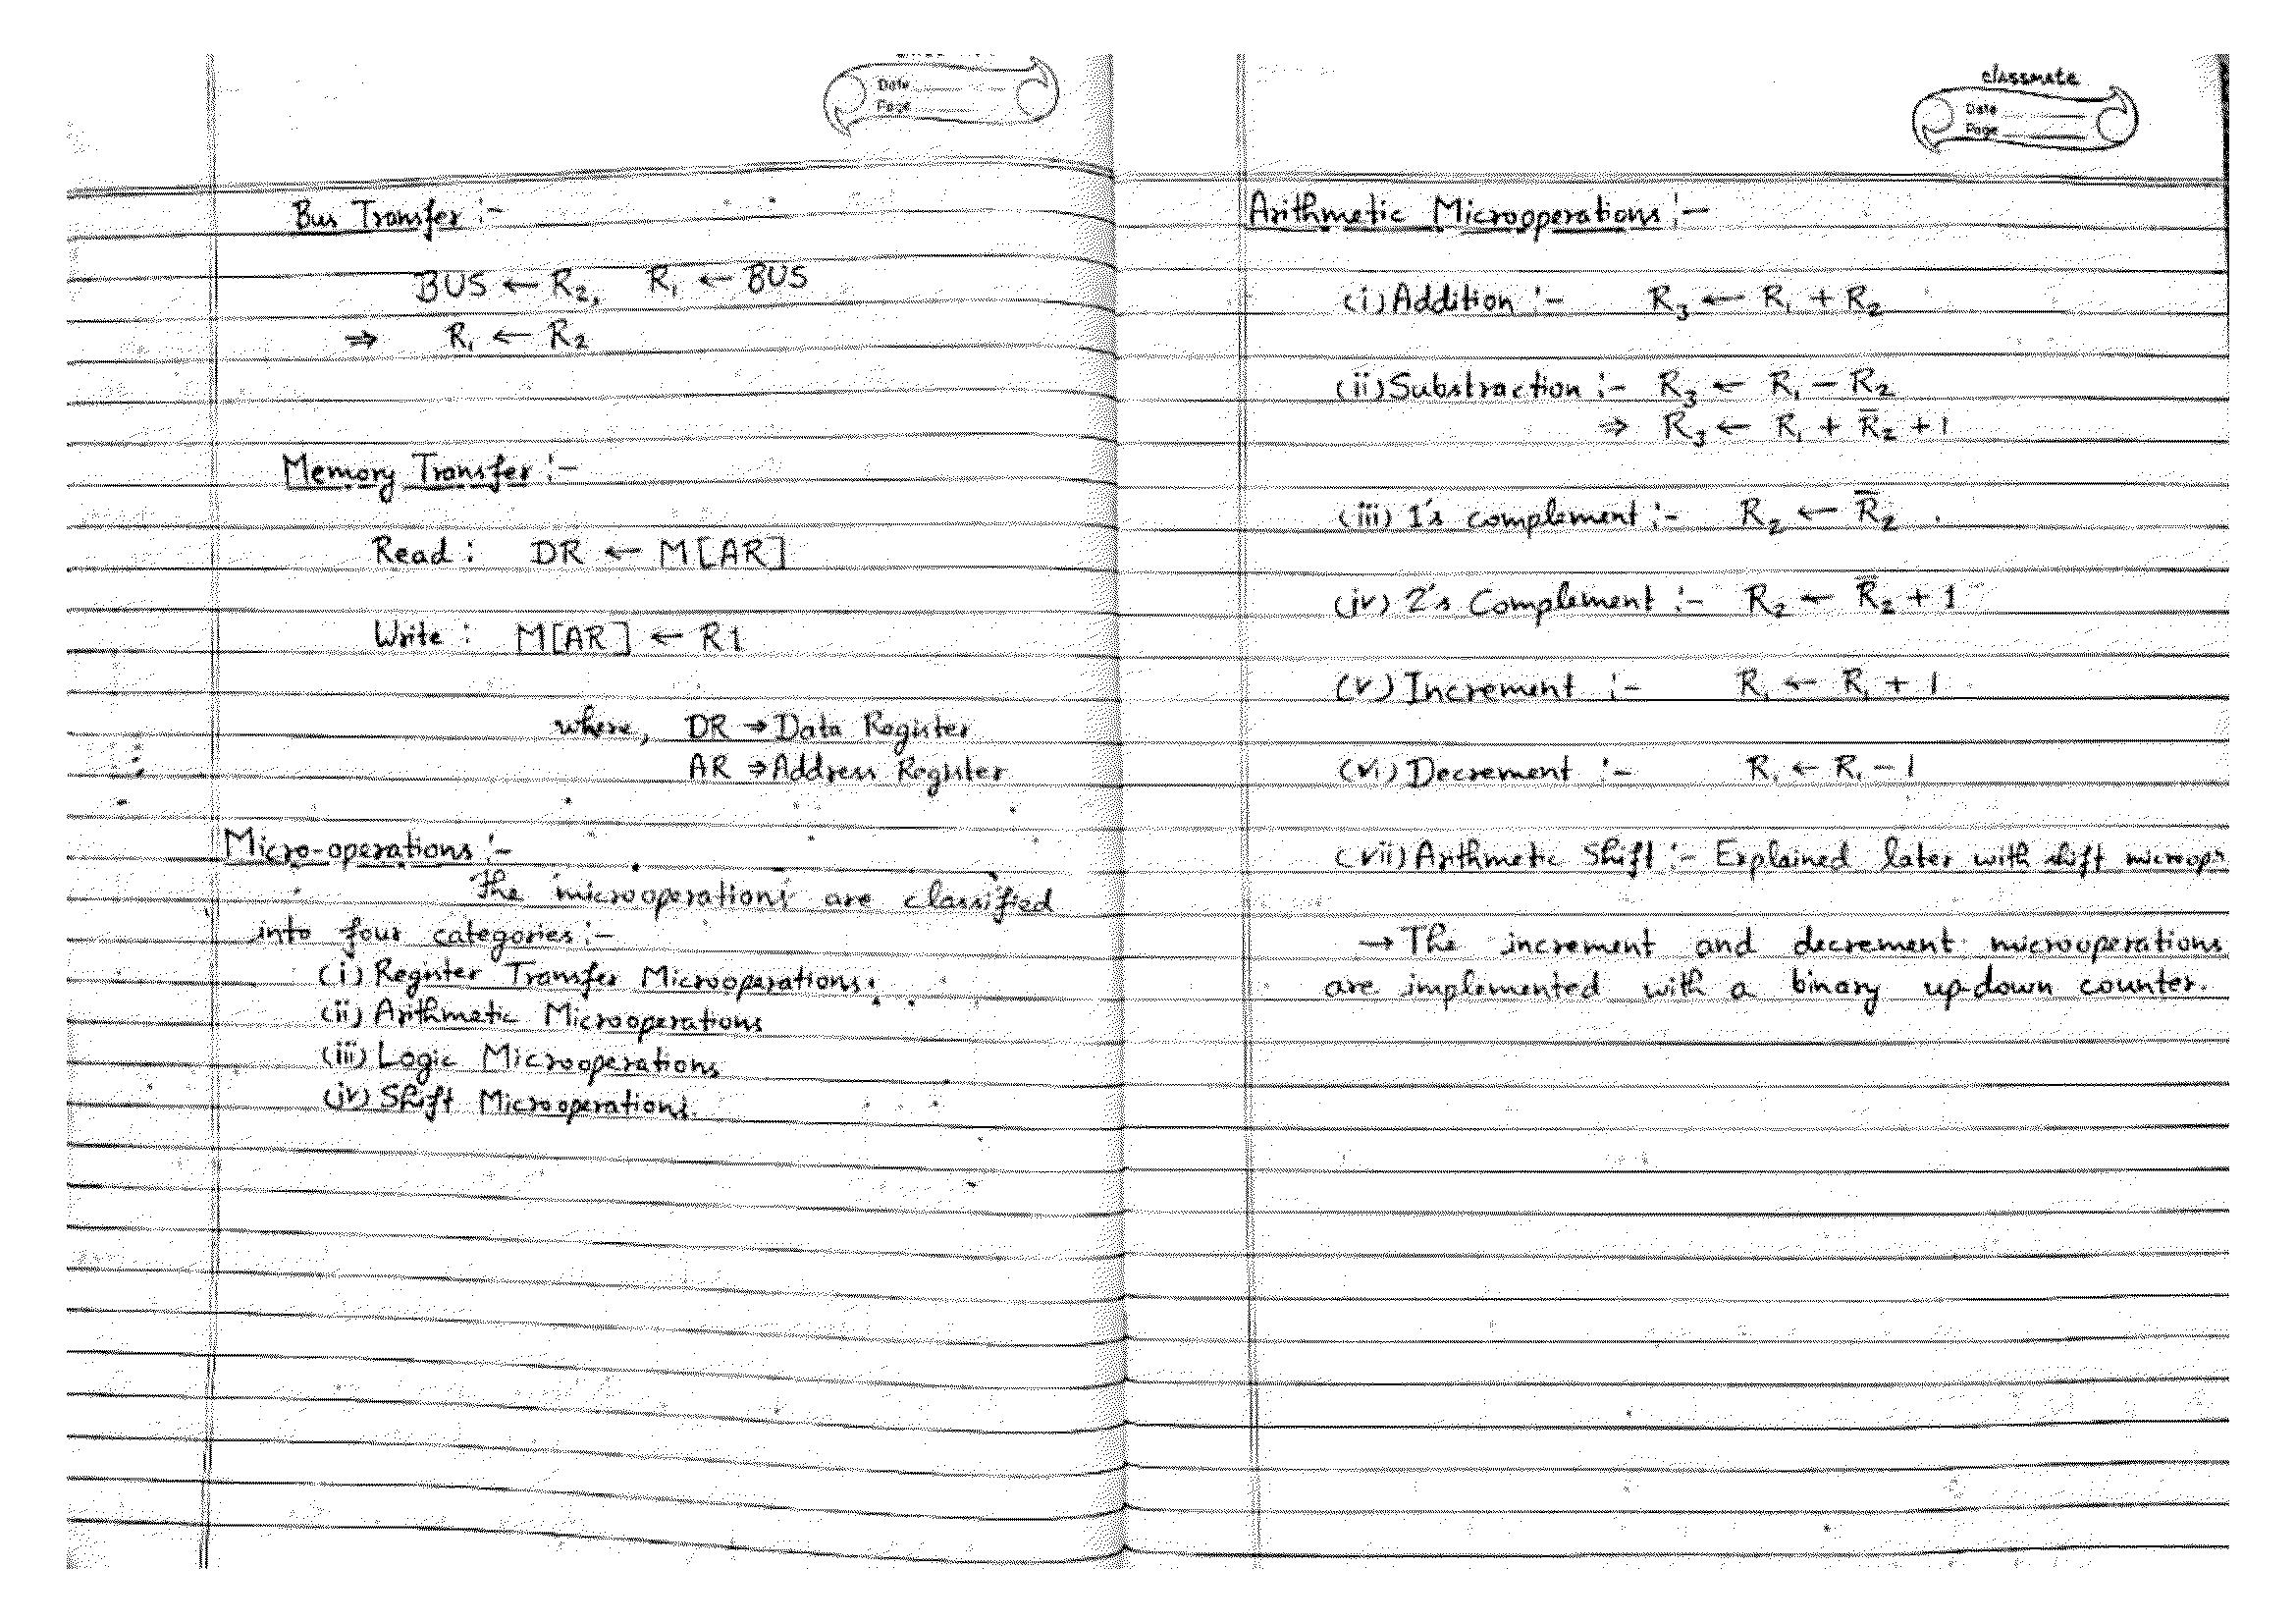 Date
Page
Bus Transfer :-
BUS ← R₂, R₁ ← BUS
⇒ R₁ ← R₂
Memory Transfer :-
Read : DR ← M[AR]
Write : M[AR] ← R1
where, DR → Data Register
AR → Address Register
Micro-operations :-
The microoperations are classified
into four categories :-
(i) Register Transfer Microoperations.
(ii) Arithmetic Microoperations
(iii) Logic Microoperations
(iv) Shift Microoperations.
classmate
Date
Page
Arithmetic Microoperations :-
(i) Addition :- R₃ ← R₁ + R₂
(ii) Substraction :- R₃ ← R₁ - R₂
⇒ R₃ ← R₁ + R̅₂ + 1
(iii) 1's complement :- R₂ ← R̅₂
(iv) 2's Complement :- R₂ ← R̅₂ + 1
(v) Increment :- R₁ ← R₁ + 1
(vi) Decrement :- R₁ ← R₁ - 1
(vii) Arithmetic Shift :- Explained later with shift microop
→ The increment and decrement microoperations
are implemented with a binary up-down counter.